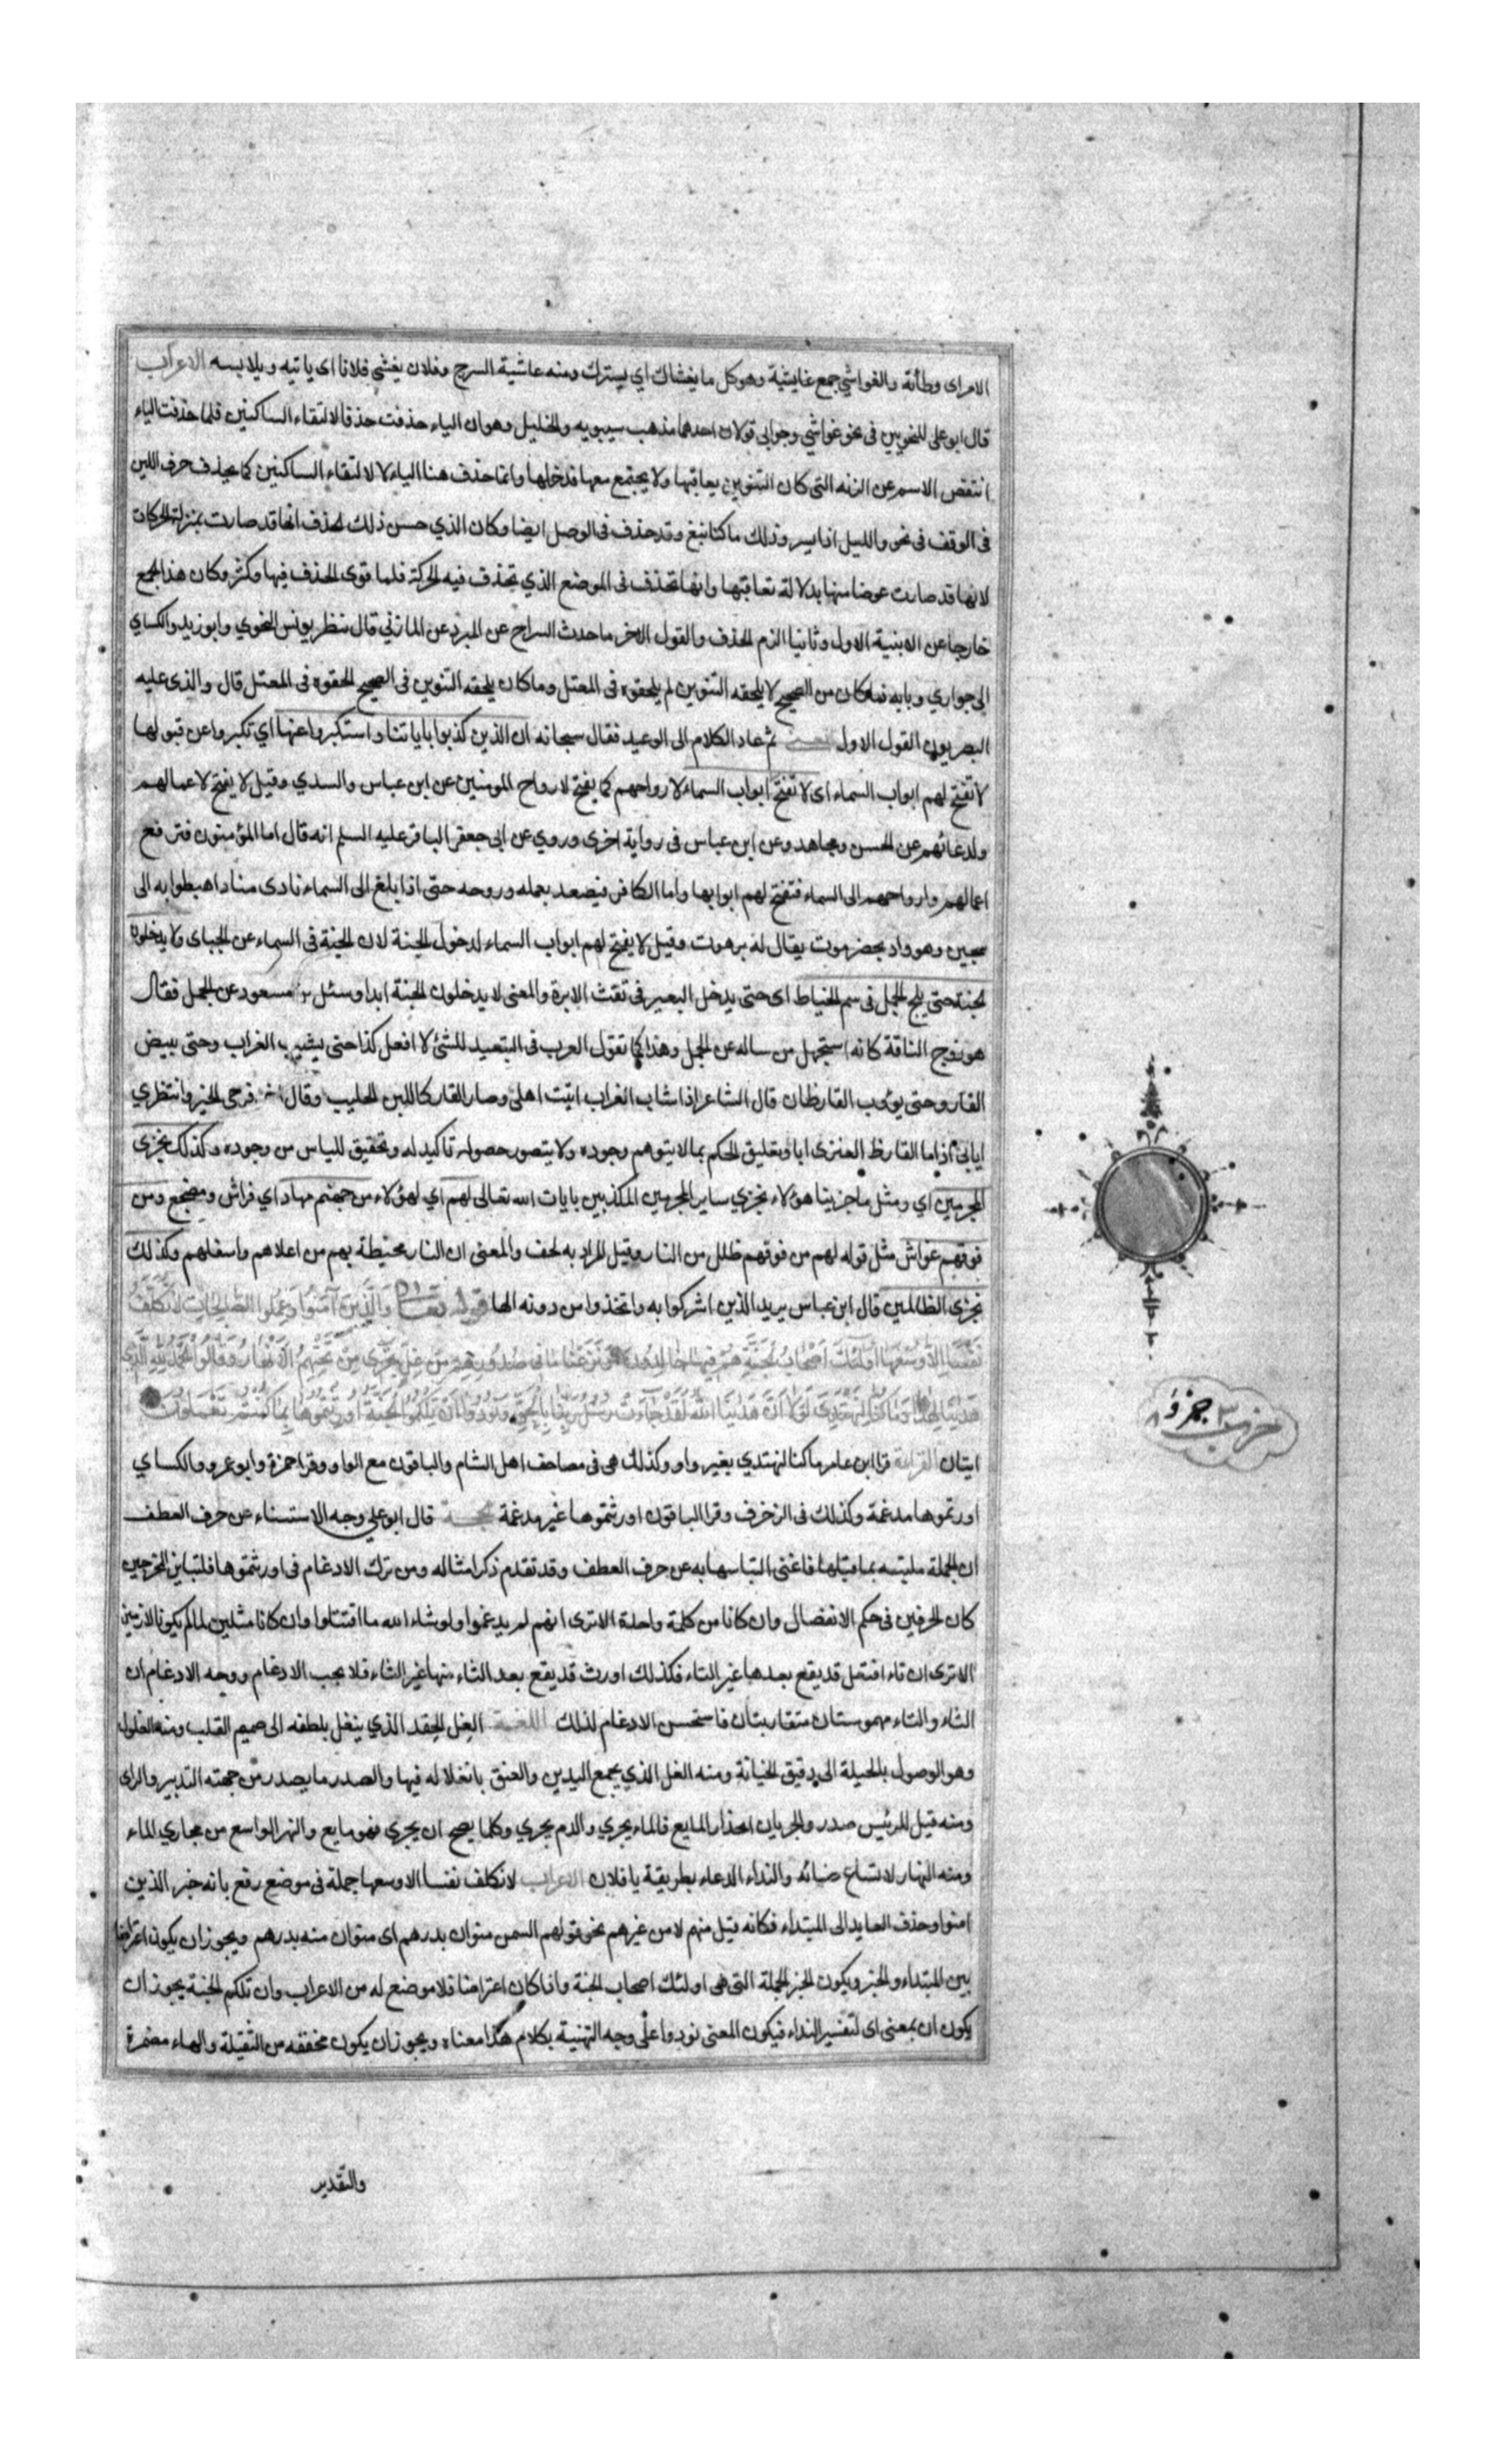 الامر اى وطأته والغواشي جمع غايشية وهو كل ما يغشاك اي يسترك ومنه غاشية السرج وفلان يغشى فلانا اى ياتيه ويلابسه الاعراب
قال ابو على للنحويين فى نحو غواشي وجوابى قولان احدهما مذهب سيبويه والخليل وهو ان الياء حذفت حذفا لالتقاء الساكنين فلما حذفت الياء
انتقض الاسم عن الزنه التى كان التنوين يعاقبها ولا يجتمع معها فدخلها وانما حذف هنا الياء لا لالتقاء الساكنين كما يحذف حرف اللين
فى الوقف فى نحو والليل اذا يسر وذلك ما كنا نبغ وقد حذف فى الوصل ايضا وكان الذي حسن ذلك الحذف انها قد صارت بمنزلة الحركات
لانها قد صارت عوضا منها بدلالة تعاقبها وانها تحذف فى الموضع الذي تحذف فيه الحركة فلما قوى الحذف فيها وكثر وكان هذا الجمع
خارجا عن الابنية الاول وثانيا الزم الحذف والقول الاخر ما حدث السراج عن المبرد عن المازني قال ننظر يونس النحوي وابو زيد والكساي
الى جواري وبابه فما كان من الصحيح لا يلحقه التنوين لم يلحقوه فى المعتل وما كان يلحقه التنوين فى الصحيح الحقوه فى المعتل قال والذى عليه
البصريون القول الاول المعنى ثم عاد الكلام الى الوعيد فقال سبحانه ان الذين كذبوا باياتنا واستكبروا عنها اي تكبروا عن قبولها
لا تفتح لهم ابواب السماء اى لا تفتح ابواب السماء لارواحهم كما يفتح لارواح المومنين عن ابن عباس والسدي وقيل لا يفتح لاعمالهم
ولدعائهم عن الحسن ومجاهد وعن ابن عباس فى رواية اخرى وروي عن ابى جعفر الباقر عليه السلم انه قال اما المؤمنون فترفع
اعمالهم وارواحهم الى السماء فتفتح لهم ابوابها واما الكافر فيصعد بعمله وروحه حتى اذا بلغ الى السماء نادى مناد اهبطوا به الى
سجين وهو واد بحضرموت يقال له برهوت وقيل لا يفتح لهم ابواب السماء لدخول الجنة لان الجنة فى السماء عن الجباى ولا يدخلون
الجنة حتى يلج الجمل فى سم الخياط اى حتى يدخل البعير فى ثقب الابرة والمعنى لا يدخلون الجنة ابدا وسئل مسعود عن الجمل فقال
هو زوج الناقة كانه استجهل من ساله عن الجمل وهذا كما تقول العرب فى التبعيد للشئ لا افعل كذا حتى يشيب الغراب وحتى يبيض
القار وحتى يؤوب القارظان قال الشاعر اذا شاب الغراب اتيت اهلى وصار القار كاللبن الحليب وقال فرجى الخير وانتظري
ايابى اذا ما القارظ العنزى ابا وتعليق الحكم بما لا يتوهم وجوده ولا يتصور حصوله تاكيد له وتحقيق للياس من وجوده وكذلك نجزى
المجرمين اي ومثل ما جزينا هؤلاء نجزي ساير المجرمين المكذبين بايات الله تعالى لهم اي لهؤلاء من جهنم مهاد اي فراش ومضجع ومن
فوقهم غواش مثل قوله لهم من فوقهم ظلل من النار وقيل المراد به لحف والمعنى ان النار محيطة بهم من اعلاهم واسفلهم وكذلك
نجزى الظالمين قال ابن عباس يريد الذين اشركوا به واتخذوا من دونه الها قوله تعالى وَالَّذِينَ آمَنُوا وَعَمِلُوا الصَّالِحَاتِ لَا نُكَلِّفُ
نَفْسًا إِلَّا وُسْعَهَا أُولَئِكَ أَصْحَابُ الْجَنَّةِ هُمْ فِيهَا خَالِدُونَ وَنَزَعْنَا مَا فِي صُدُورِهِمْ مِنْ غِلٍّ تَجْرِي مِنْ تَحْتِهِمُ الْأَنْهَارُ وَقَالُوا الْحَمْدُ لِلَّهِ الَّذِي
هَدَانَا لِهَذَا وَمَا كُنَّا لِنَهْتَدِيَ لَوْلَا أَنْ هَدَانَا اللَّهُ لَقَدْ جَاءَتْ رُسُلُ رَبِّنَا بِالْحَقِّ وَنُودُوا أَنْ تِلْكُمُ الْجَنَّةُ أُورِثْتُمُوهَا بِمَا كُنْتُمْ تَعْمَلُونَ
ايتان القراءة قرا ابن عامر ما كنا لنهتدي بغير واو وكذلك هى فى مصاحف اهل الشام والباقون مع الواو وقرا حمزة وابو عمرو والكساي
اورتموها مدغمة وكذلك فى الزخرف وقرا الباقون اورثتموها غير مدغمة الحجة قال ابو على وجه الاستسناء عن حرف العطف
ان الجملة ملتبسه بما قبلها فاغنى التباسها به عن حرف العطف وقد تقدم ذكر امثاله ومن ترك الادغام فى اورثتموها فلتباين المخرجين
كان الحرفين فى حكم الانفصال وان كانا من كلمة واحدة الا ترى انهم لم يدغموا ولو شاء الله ما اقتتلوا وان كانا مثلين لما لم يكونا لازمين
الا ترى ان تاء افتعل قد يقع بعدها غير التاء فكذلك اورث قد يقع بعد الثاء منها غير التاء فلا يجب الادغام ووجه الادغام ان
الثاء والتاء مهموستان متقاربتان فاستحسن الادغام لذلك اللغة الغل الحقد الذي ينغل بلطفه الى صميم القلب ومنه الغلول
وهو الوصول بالحيلة الى دقيق الخيانة ومنه الغل الذي يجمع اليدين والعنق بانغلاله فيها والصدر ما يصدر من جهته التدبير والراى
ومنه قيل للرئيس صدر والجريان انحدار المايع فالماء يجري والدم يجري وكلما يصح ان يجرى فهو مايع والنهر الواسع من مجاري الماء
ومنه النهار لاتساع ضيائه والنداء الدعاء بطريقة يا فلان الاعراب لا نكلف نفسا الا وسعها جملة فى موضع رفع بانه خبر الذين
امنوا وحذف العايد الى المبتداء فكانه قيل منهم لا من غيرهم نحو قولهم السمن منوان بدرهم اى منوان منه بدرهم ويجوز ان يكون اعتراضا
بين المبتداء والخبر ويكون الخبر الجملة التى هى اولئك اصحاب الجنة واذا كان اعتراضا فلا موضع له من الاعراب وان تلكم الجنة يجوز ان
يكون ان بمعنى اى لتفسير النداء فيكون المعنى نودوا على وجه التهنية بكلام هذا معناه ويجوز ان يكون مخففه من الثقيلة والهاء مضمرة
والتقدير
حزب ٣ جزؤ ٨